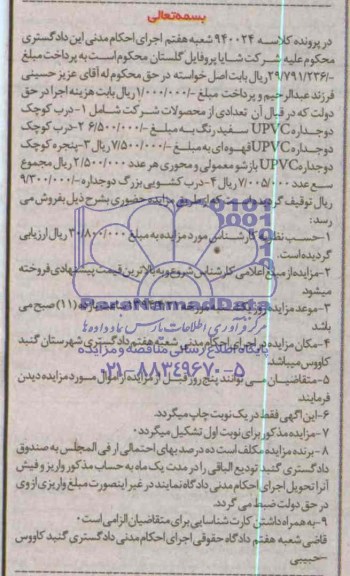 بسمه‌تعالی
در پرونده کلاسه ۹۴۰۰۲۴ شعبه هفتم اجرای احکام مدنی این دادگستری
محکوم علیه شرکت شایا پروفایل گلستان محکوم است به پرداخت مبلغ
۲۹/۷۹۱/۲۳۶/- ریال بابت اصل خواسته در حق محکوم له آقای عزیز حسینی
فرزند عبدالرحیم و پرداخت مبلغ -/۱/۰۰۰/۰۰۰ ریال بابت هزینه اجرا در حق
دولت که در قبال آن تعدادی از محصولات شرکت شامل ۱-درب کوچک
دوجداره UPVC سفید رنگ به مبلغ -/۶/۵۰۰/۰۰۰ ۲-درب کوچک
دوجداره UPVC قهوه‌ای به مبلغ -/۷/۵۰۰/۰۰۰ ریال ۳-پنجره کوچک
دوجداره UPVC بازشو معمولی و محوری هر عدد ۲/۵۰۰/۰۰۰ ریال مجموع
سه عدد ۷/۰۰۵/۰۰۰ ریال ۴-درب کشویی بزرگ دوجداره -/۹/۳۰۰/۰۰۰
ریال توقیف گردیده از طریق مزایده حضوری بشرح ذیل بفروش می
رسد:
۱-حسب نظریه کارشناس مورد مزایده به مبلغ ۳۰/۸۰۰/۰۰۰ ریال ارزیابی
گردیده است.
۲-مزایده از مبلغ اعلامی کارشناس شروع و به بالاترین قیمت پیشنهادی فروخته
میشود
۳-موعد مزایده روز یکشنبه مورخه ساعت یازده (۱۱) صبح می
باشد
۴-مکان مزایده در اجرای احکام مدنی شعبه هفتم دادگستری شهرستان گنبد
کاووس میباشد
۵-متقاضیان می توانند پنج روز قبل از مزایده از اموال مورد مزایده دیدن
فرمایند
۶-این آگهی فقط در یک نوبت چاپ میگردد.
۷-مزایده مذکور برای نوبت اول تشکیل میگردد.
۸-برنده مزایده مکلف است ده درصد بهای احتمالی را فی المجلس به صندوق
دادگستری گنبد تودیع الباقی را در مدت یک ماه به حساب مذکور واریز و فیش
آنرا تحویل اجرای احکام مدنی دادگاه نمایند در غیر اینصورت مبلغ واریزی از وی
در حق دولت ضبط می گردد.
۹-به همراه داشتن کارت شناسایی برای متقاضیان الزامی است.
قاضی شعبه هفتم دادگاه حقوقی اجرای احکام مدنی دادگستری گنبد کاووس
-حبیبی
ParsNamadData
مرکز فرآوری اطلاعات پارس نماد داده‌ها
پایگاه اطلاع رسانی مناقصه و مزایده
۰۲۱-۸۸۳۴۹۶۷۰-۵